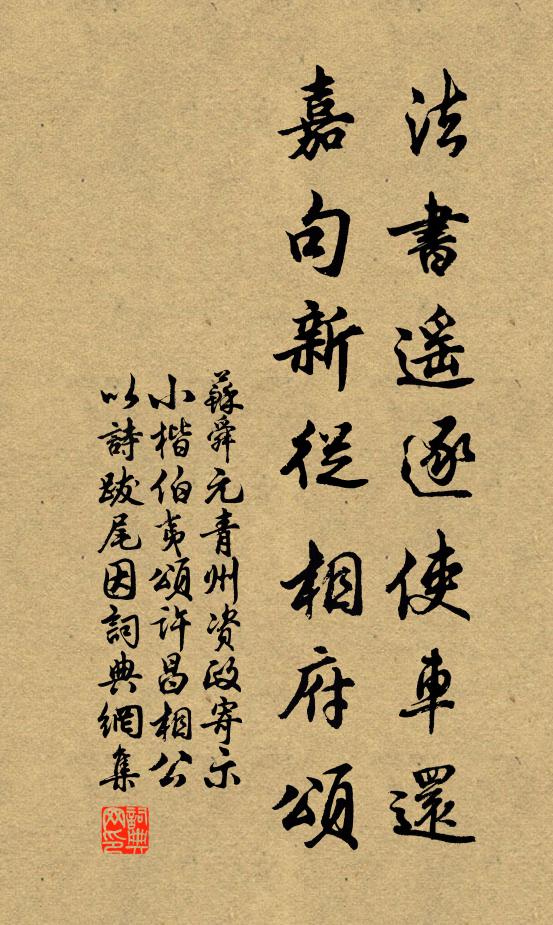 法書遥逐使車還
嘉句新從相府頌
蘇舜元青州资政寄示
小楷伯夷頌許昌相公
以詩跋尾因詞典網集
詞典网印